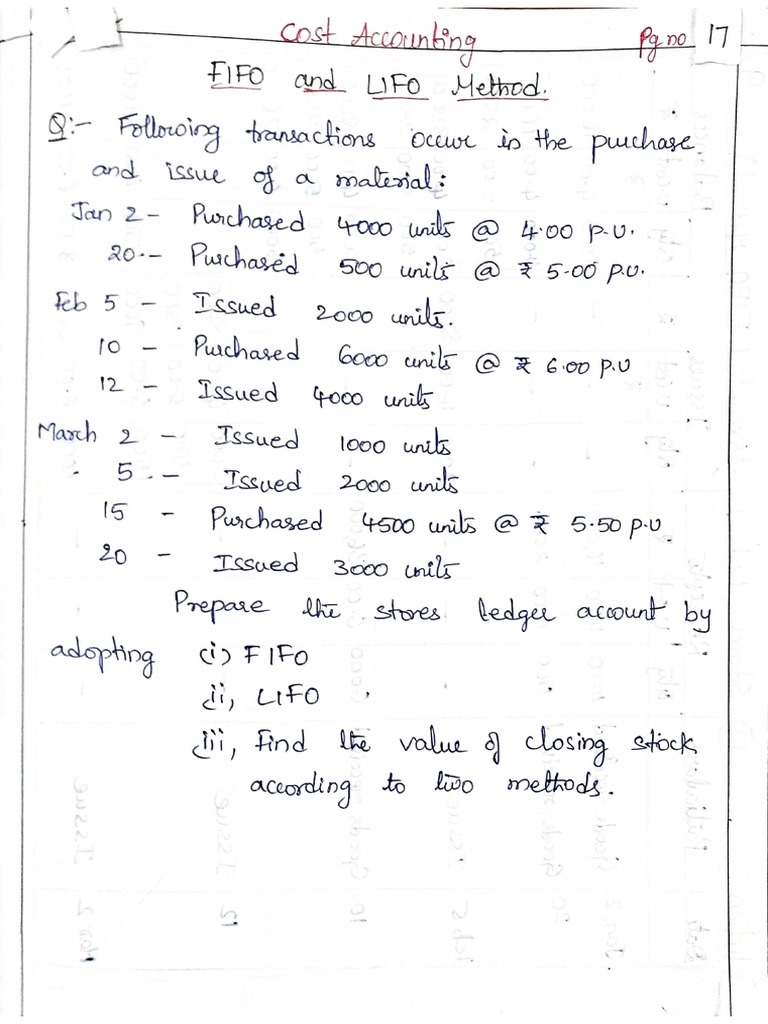 Cost Accounting Pg no 17
FIFO and LIFO Method.
Q:- Following transactions occur in the purchase
and issue of a material:
Jan 2 - Purchased 4000 units @ 4.00 P.U.
20.- Purchased 500 units @ ₹ 5.00 P.U.
Feb 5 - Issued 2000 units.
10 - Purchased 6000 units @ ₹ 6.00 P.U
12 - Issued 4000 units
March 2 - Issued 1000 units
5.- Issued 2000 units
15 - Purchased 4500 units @ ₹ 5.50 P.U
20 - Issued 3000 units
Prepare the stores ledger account by
adopting (i) FIFO
(ii, LIFO
(iii, Find the value of closing stock
according to two methods.